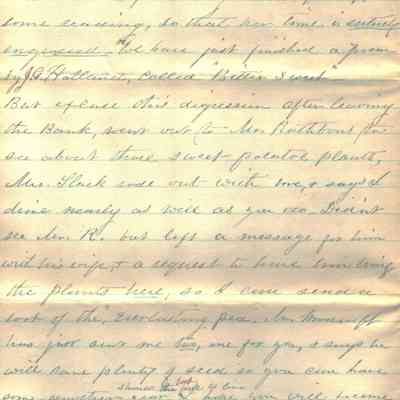 some reading, so that her time is entirely
engrossed. We have just finished a poem
by J.G. Holland, called "Bitter Sweet"
But excuse this digression after leaving
the Bank, went out to Mr. Rathbone's to
see about those sweet potatoe plants,
Mrs. Slack rode out with me, & says I
drive nearly as well as you do. Didn't
see Mr. R. but left a message for him
with his wife, & a request to have him bring
the plants here, so I can send a
root of the Everlasting Pea. Mr.
has just sent me two, one for you, & says he
will have plenty of seed so you can have
should the root fail to live
some I hope you will